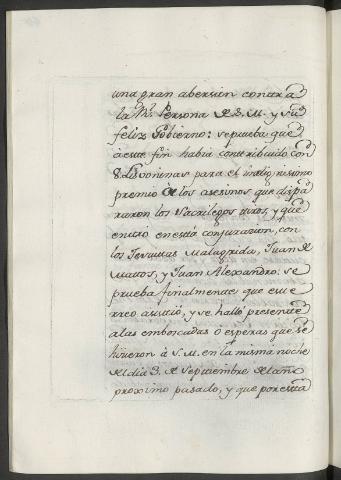 una gran abersion contra
la Rl. Persona de S. M. y su
feliz Gobierno: se prueba que
à este fin habia contribuido con
8. Lisboninas para el indignisimo
premio de los asesinos que dispa
raron los Sacrilegos tiros, y que
entró en esta conjuracion, con
los Jesuitas Malagrida, Juan de
Mattos, y Juan Alexandro: se
prueba finalmente que este
rreo asistió, y se halló presente
a las emboscadas ó esperas que se
hicieron à S. M. en la misma noche
del dia 3. de Septiembre del año
proximo pasado, y que por esta